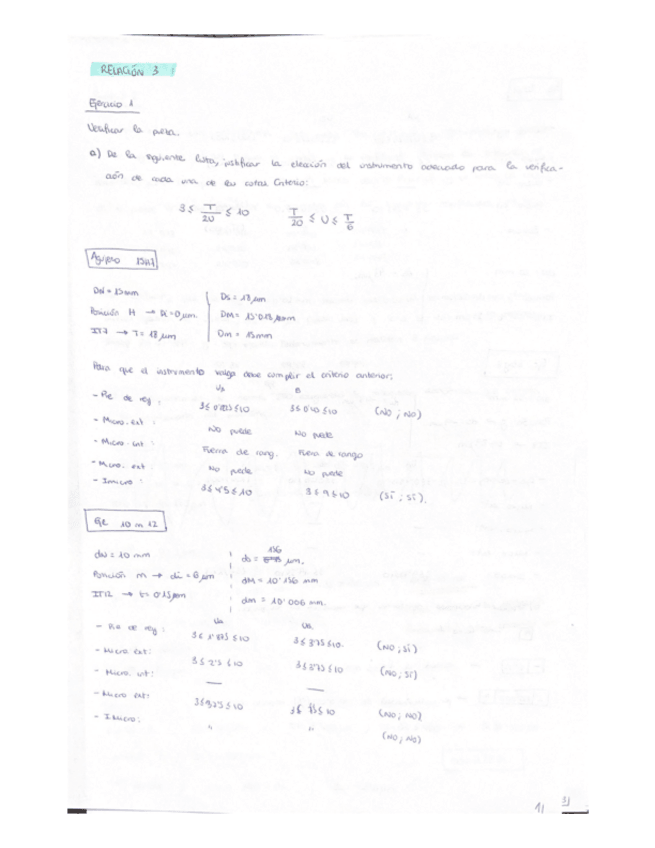 RELACIÓN 3
Ejercicio 1
Verificar la pieza.
a) De la siguiente lista, justificar la elección del instrumento adecuado para la verifica-
ción de cada una de las cotas. Criterio:
3 ≤ T/20 ≤ 10 T/20 ≤ U ≤ T/6
Agujero 15H7
DN = 15mm
Posición H → Di = 0 µm.
IT7 → T = 18 µm
Ds = 18 µm
DM = 15'018 mm
Dm = 15mm
Para que el instrumento valga debe cumplir el criterio anterior:
UA B
- Pie de rey: 3 ≤ ≤ 10 3 ≤ ≤ 10 (NO ; NO)
- Micro. ext: No puede No puede
- Micro. int: Fuera de rang. Fuera de rango
- Micro. ext: No puede No puede
- Imicro: 3 ≤ 4'5 ≤ 10 3 ≤ 9 ≤ 10 (SÍ ; SÍ).
Eje 10 m 12
dN = 10 mm
Posición m → di = 6 µm
IT12 → t = 0'15 mm
ds = 156 µm.
dM = 10'156 mm
dm = 10'006 mm.
UA UB
- Pie de rey: 3 ≤ 1'875 ≤ 10 3 ≤ 3'75 ≤ 10. (NO ; SÍ)
- Micro ext: 3 ≤ ≤ 10 3 ≤ 3'75 ≤ 10 (NO ; SÍ)
- Micro. int: — —
- Micro ext: 3 ≤ ≤ 10 3 ≤ ≤ 10 (NO ; NO)
- Imicro: " " (NO ; NO)